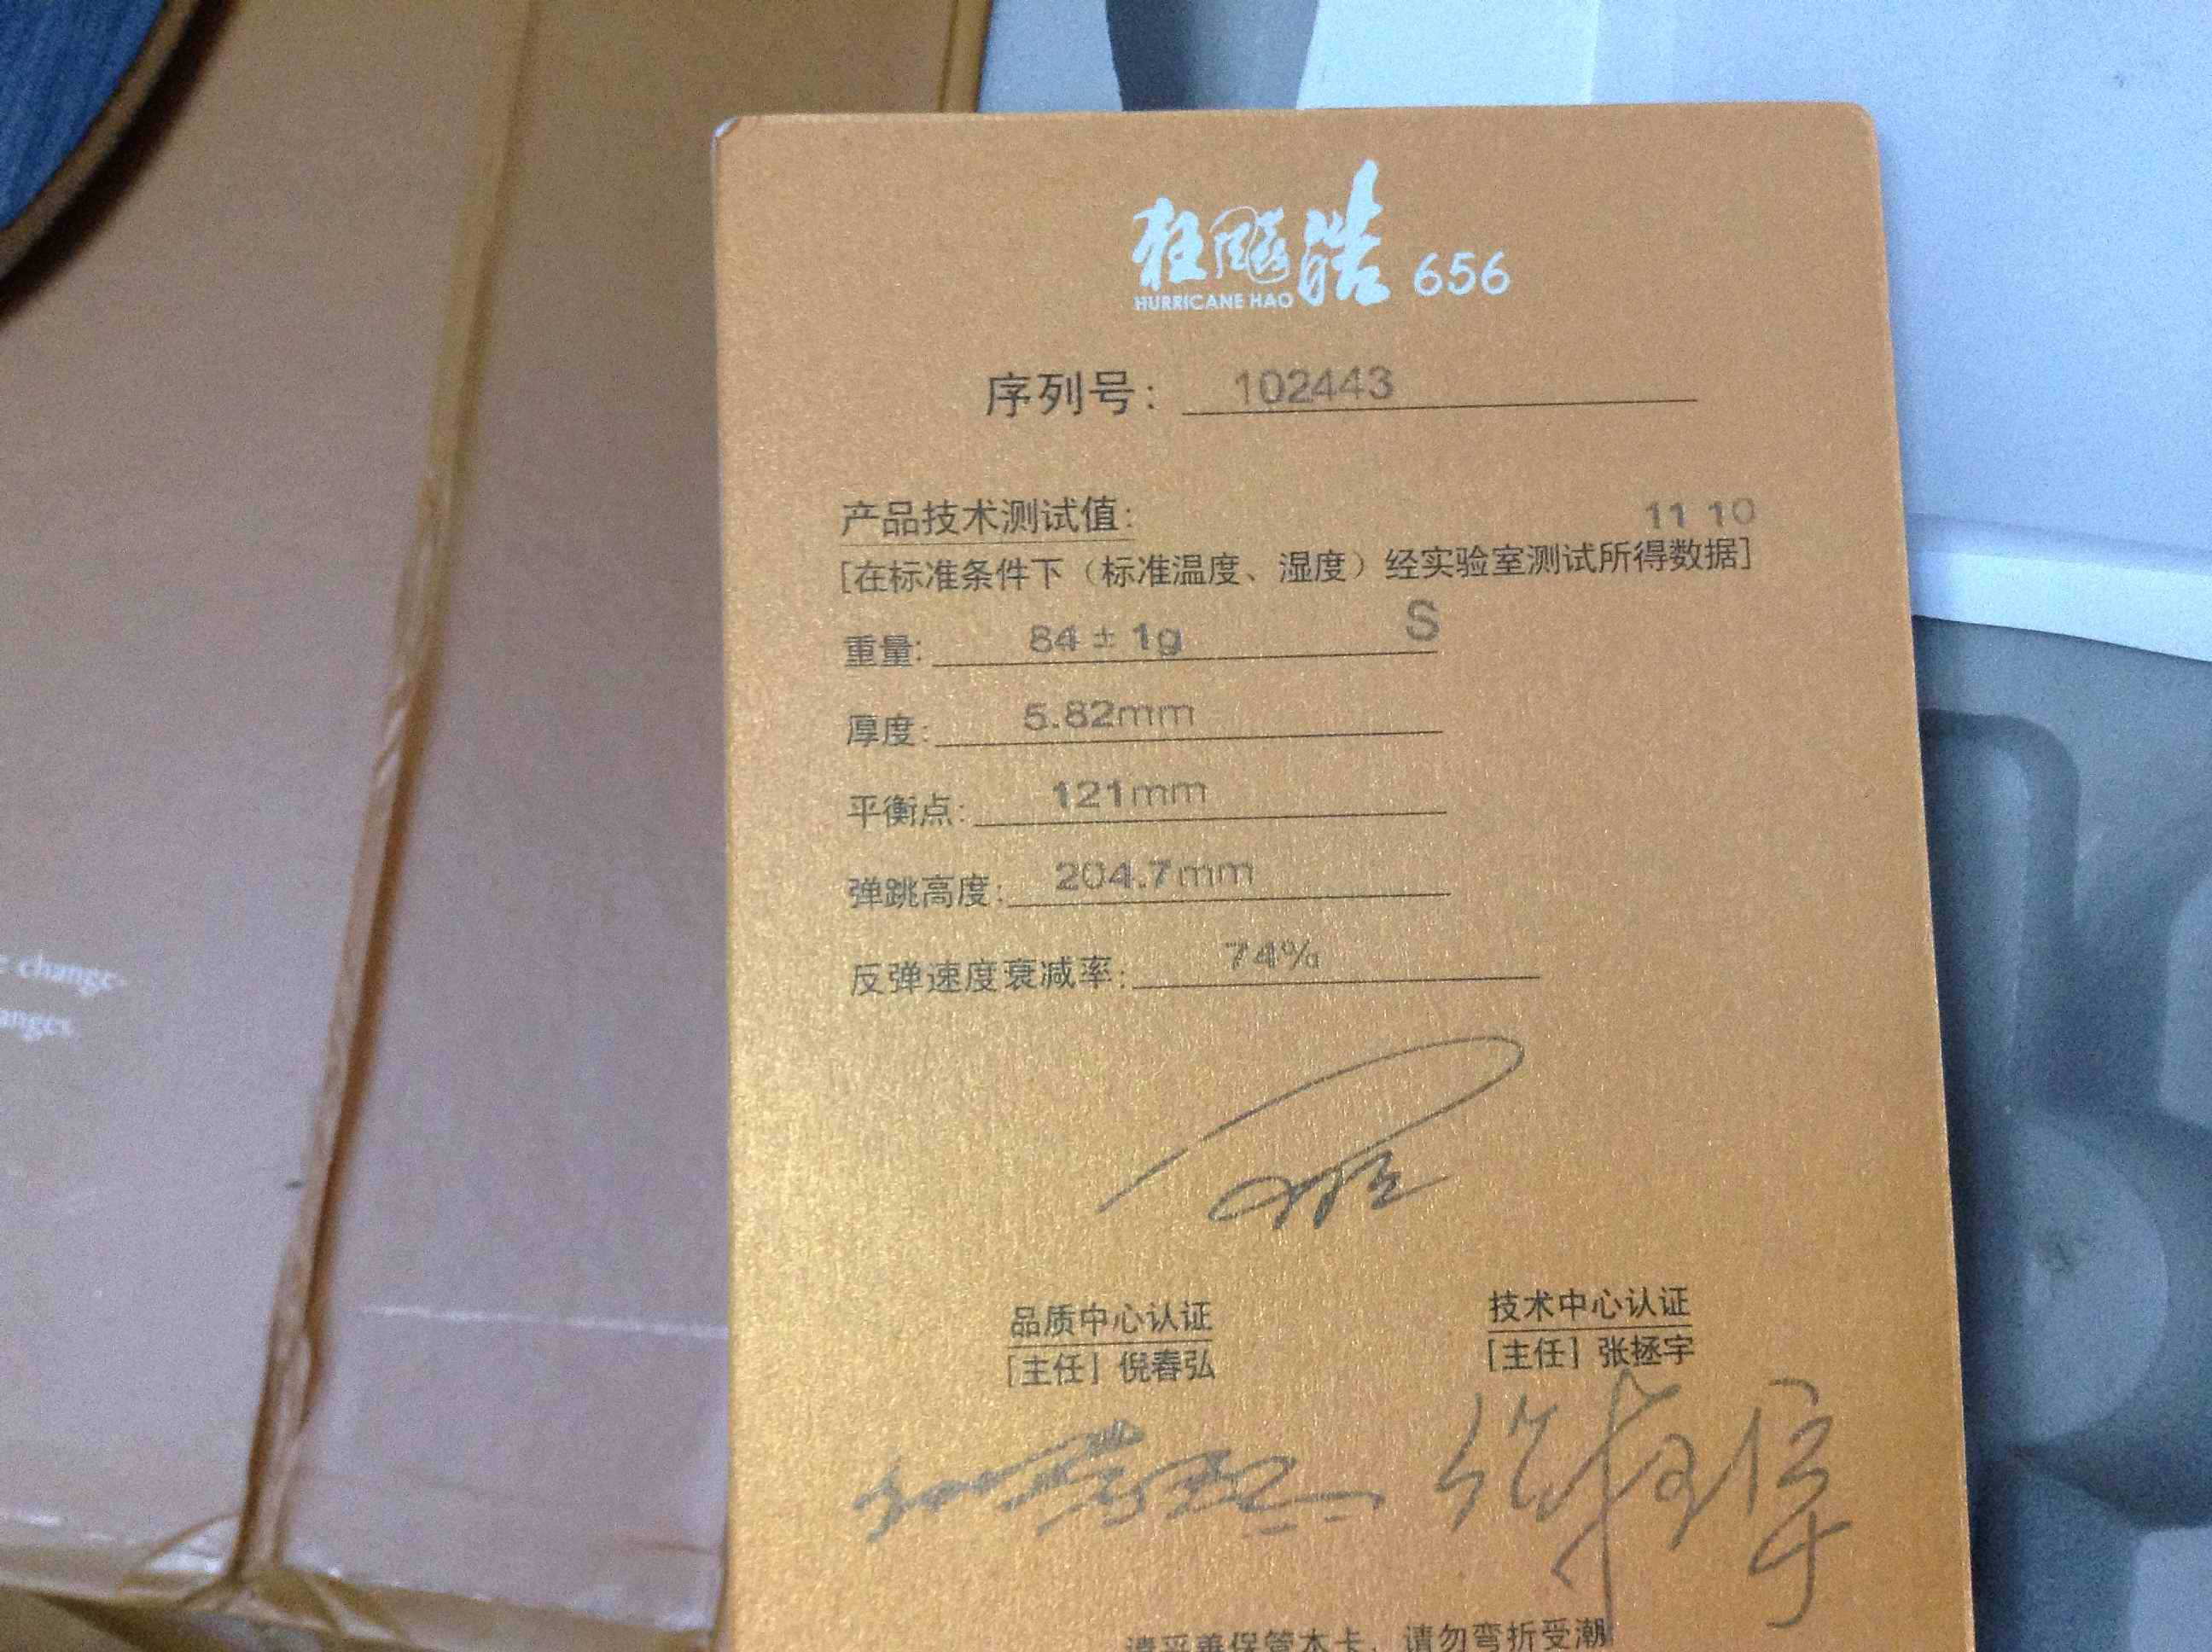 狂飚皓 656
HURRICANE HAO
序列号： 102443
产品技术测试值：
11 10
[在标准条件下（标准温度、湿度）经实验室测试所得数据]
重量: 84 ± 1g S
厚度: 5.82mm
平衡点: 121mm
弹跳高度: 204.7mm
反弹速度衰减率: 74%
品质中心认证
[主任] 倪春弘
技术中心认证
[主任] 张拯宇
请妥善保管本卡，请勿弯折受潮
change
anges